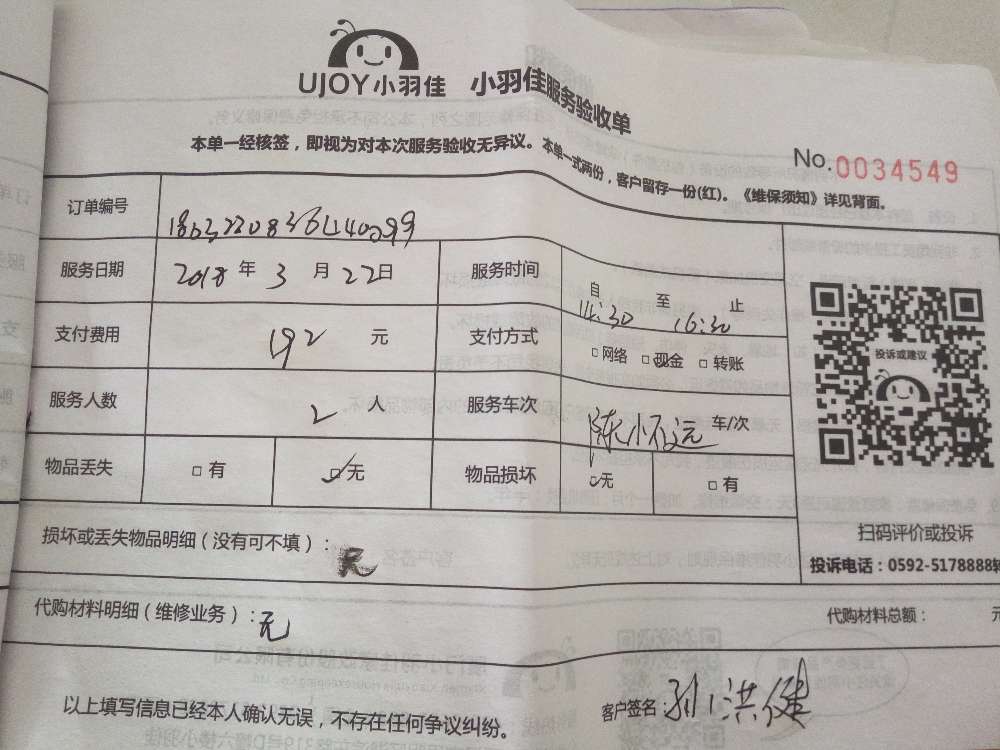 UJOY小羽佳 小羽佳服务验收单
本单一经核签，即视为对本次服务验收无异议。本单一式两份，客户留存一份(红)。《维保须知》详见背面。
No.0034549
订单编号
服务日期 2018年3月22日 服务时间 自14:30至16:30止
支付费用 192元 支付方式 □网络 □现金 □转账
服务人数 2人 服务车次 车/次
物品丢失 □有 □无 物品损坏 □无 □有
投诉或建议
扫码评价或投诉
投诉电话：0592-5178888转
损坏或丢失物品明细（没有可不填）：
代购材料明细（维修业务）：无 代购材料总额： 元
以上填写信息已经本人确认无误，不存在任何争议纠纷。 客户签名：孙洪健